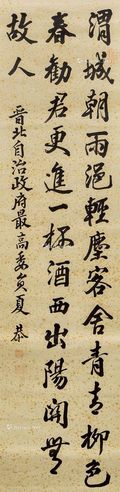 渭城朝雨浥輕塵客舍青青柳色
春勸君更進一杯酒西出陽關無
故人
晉北自治政府最高委員夏恭